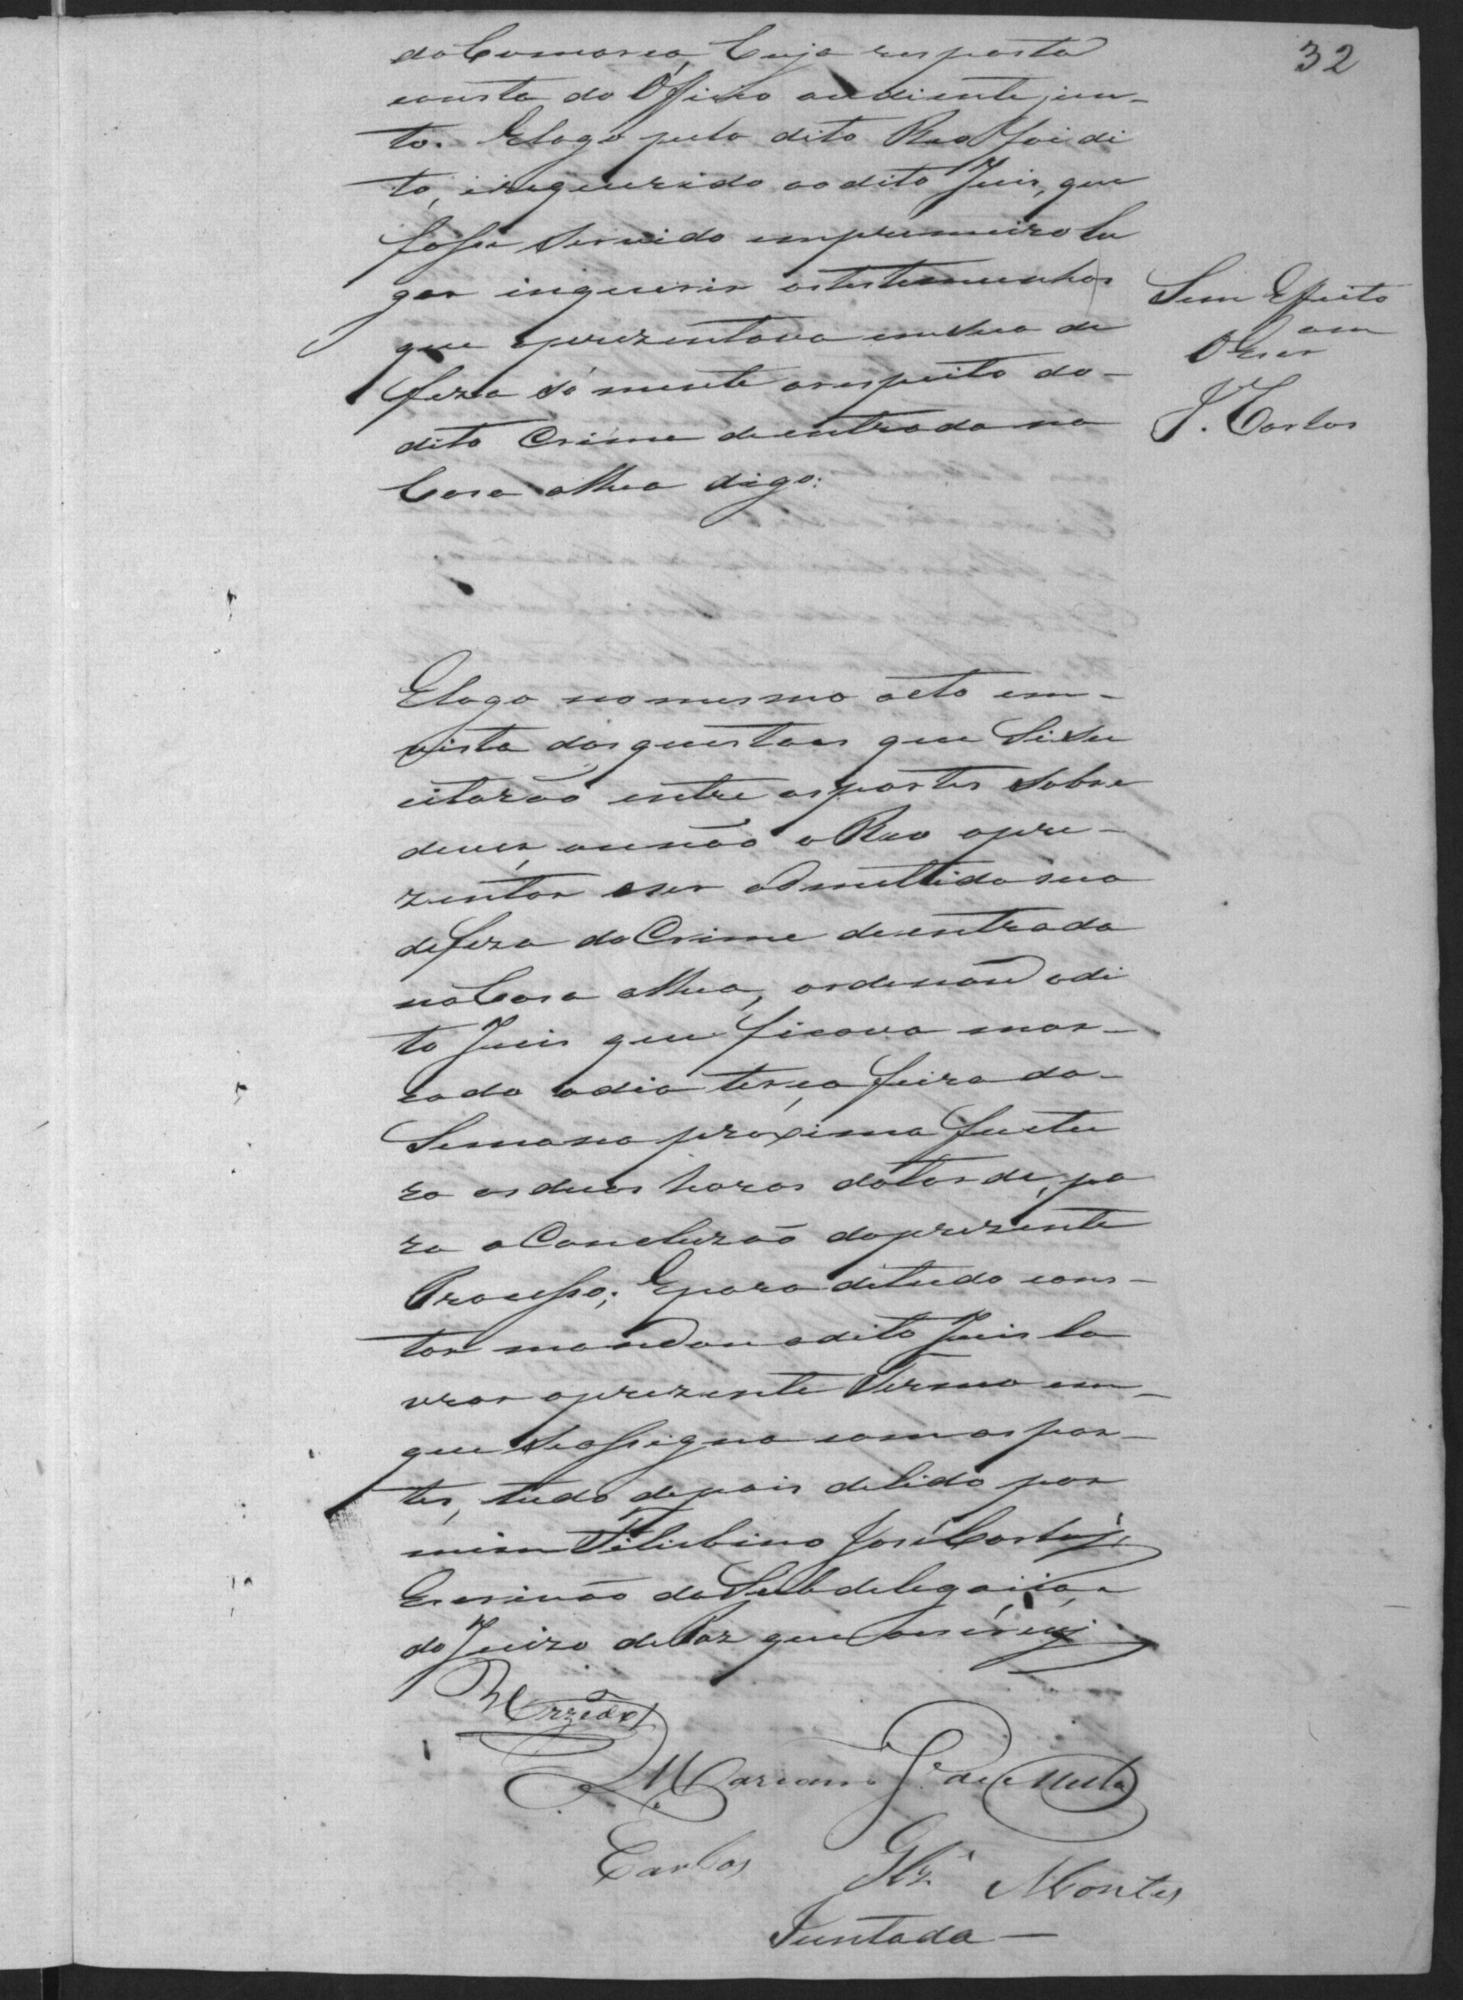 32
da Comarca, Cuja resposta
consta do Officio adiente jun-
to. E logo pelo dito Reo foi di
to, irequerido ao dito Juis, que
fosse servido em premeiro lu
gar inquerir as testemunhas
que aprezentava em sua de
feza sómente a respeito do-
dito Crime de entrada na
Casa alhea digo:
Sem Efeito
J. Carlos
E logo no mesmo acto em-
vista das questoes que Sisu
citarão entre as partes sobre
dever, ou não o Reo apre-
zentar eser admettido sua
defeza do Crime de entrada
na Casa alhea, ordenou o di
to Juis que ficava mar-
cado o dia terça feira da-
Semana próxima futu
ra as duas horas da tarde, pa
ra a Concluzão do prezente
Processo; E para de tudo cons-
tar mandou o dito Juis la
vrar o prezente Termo em-
que se assigna com as par-
tes, tudo depois de lido por
mim Filisbino José Cortes,
Escrivão da Subdelegacia, e
do Juizo de Paz que o escrevy
Mariano Je. de Mello
Carlos Glz. Montes
Juntada -